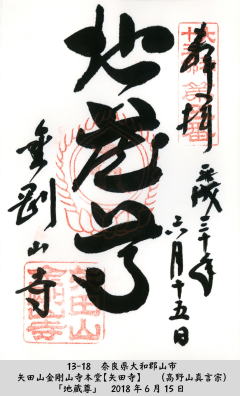 奉拝
平成三十年
六月十五日
地蔵尊
金剛山寺
矢田山
金剛山寺
13-18 奈良県大和郡山市
矢田山金剛山寺本堂【矢田寺】 (高野山真言宗)
「地蔵尊」 2018年6月15日